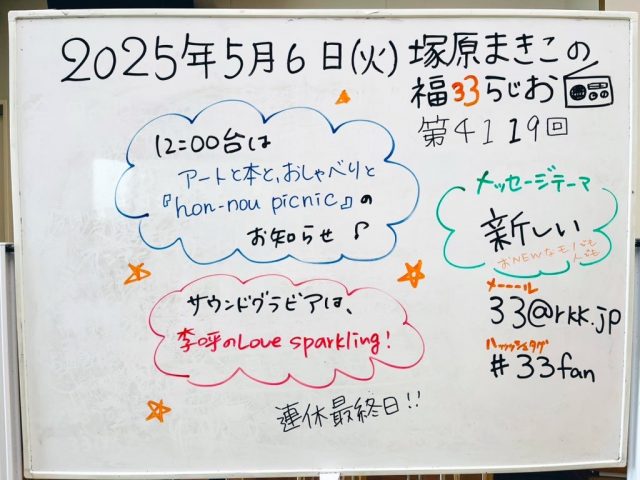 2025年5月6日(火) 塚原まきこの
福33らじお
第4119回
12:00台は
アートと本と、おしゃべりと
『hon-nou picnic』の
お知らせ♪
メッセージテーマ
新しい
おNEWなモノでも
人でも
サウンドグラビアは、
李呼のLove sparkling!
メーーール
33@rkk.jp
ハッッシュタグ
#33fan
連休最終日!!